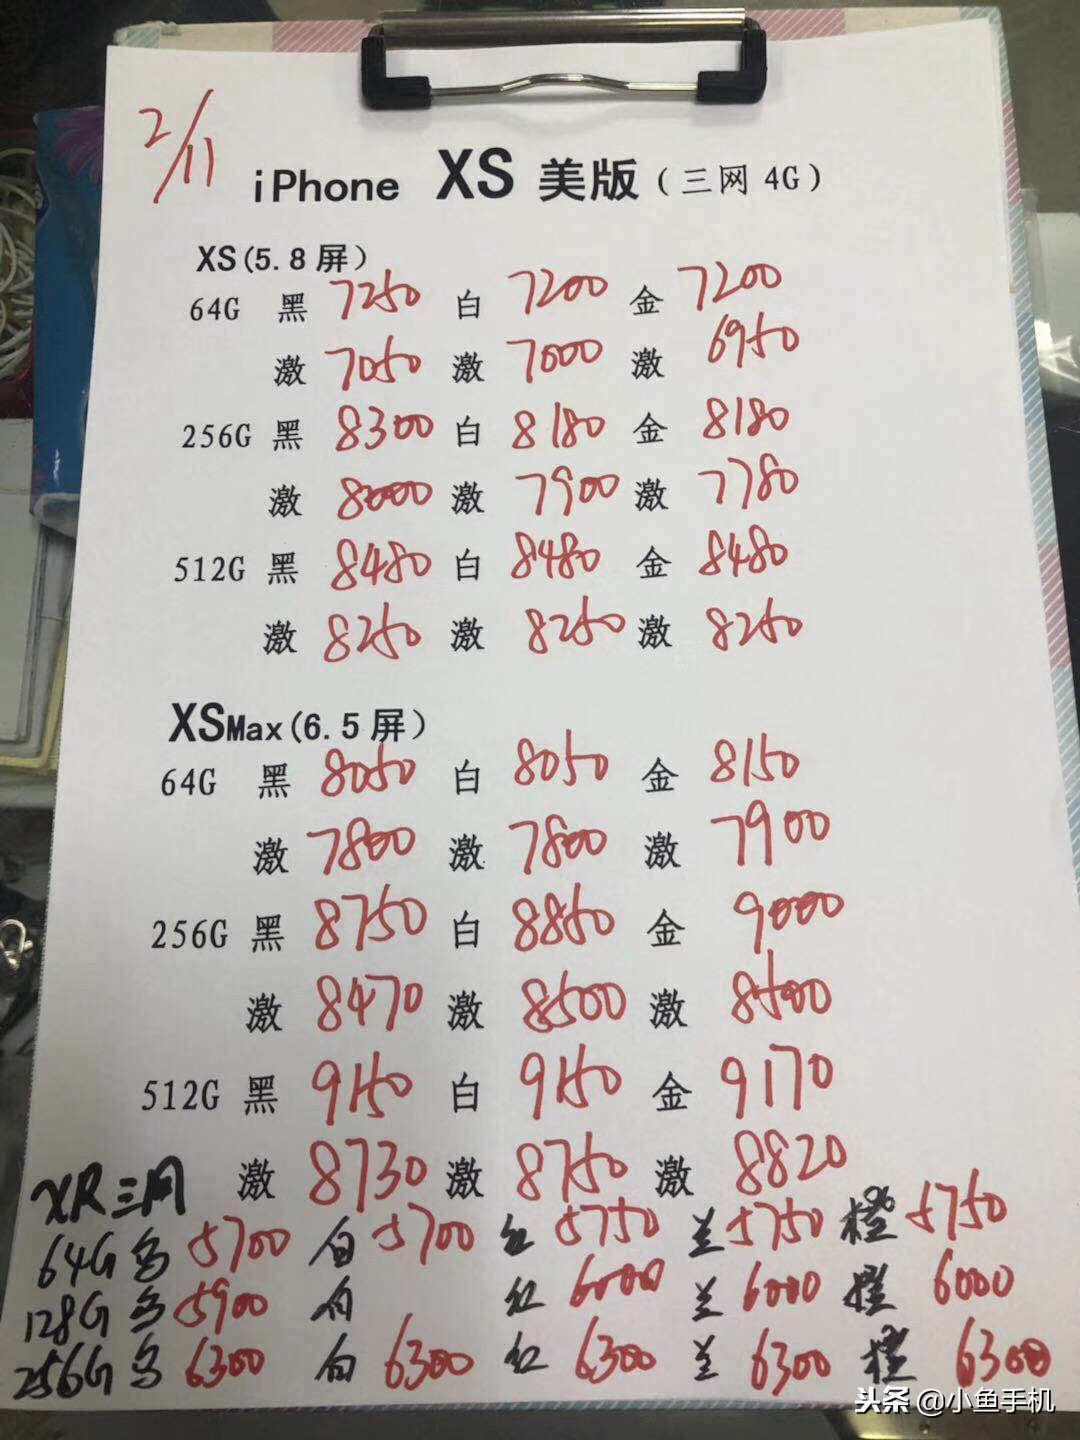 2/11
iPhone XS 美版（三网 4G）
XS(5.8 屏）
64G 黑 7250 白 7200 金 7200
激 7050 激 7000 激 6950
256G 黑 8300 白 8180 金 8180
激 8000 激 7900 激 7780
512G 黑 8480 白 8480 金 8480
激 8250 激 8250 激 8250
XSMax(6.5 屏）
64G 黑 8050 白 8050 金 8150
激 7800 激 7800 激 7900
256G 黑 8750 白 8850 金 9000
激 8470 激 8500 激 8500
512G 黑 9150 白 9150 金 9170
激 8730 激 8750 激 8820
XR三网
64G 5700 白 5700 红 5750 兰 5750 橙 5750
128G 5900 白 红 6000 兰 6000 橙 6000
256G 6300 白 6300 红 6300 兰 6300 橙 6300
头条 @小鱼手机